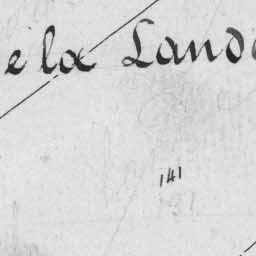 e la Land
141